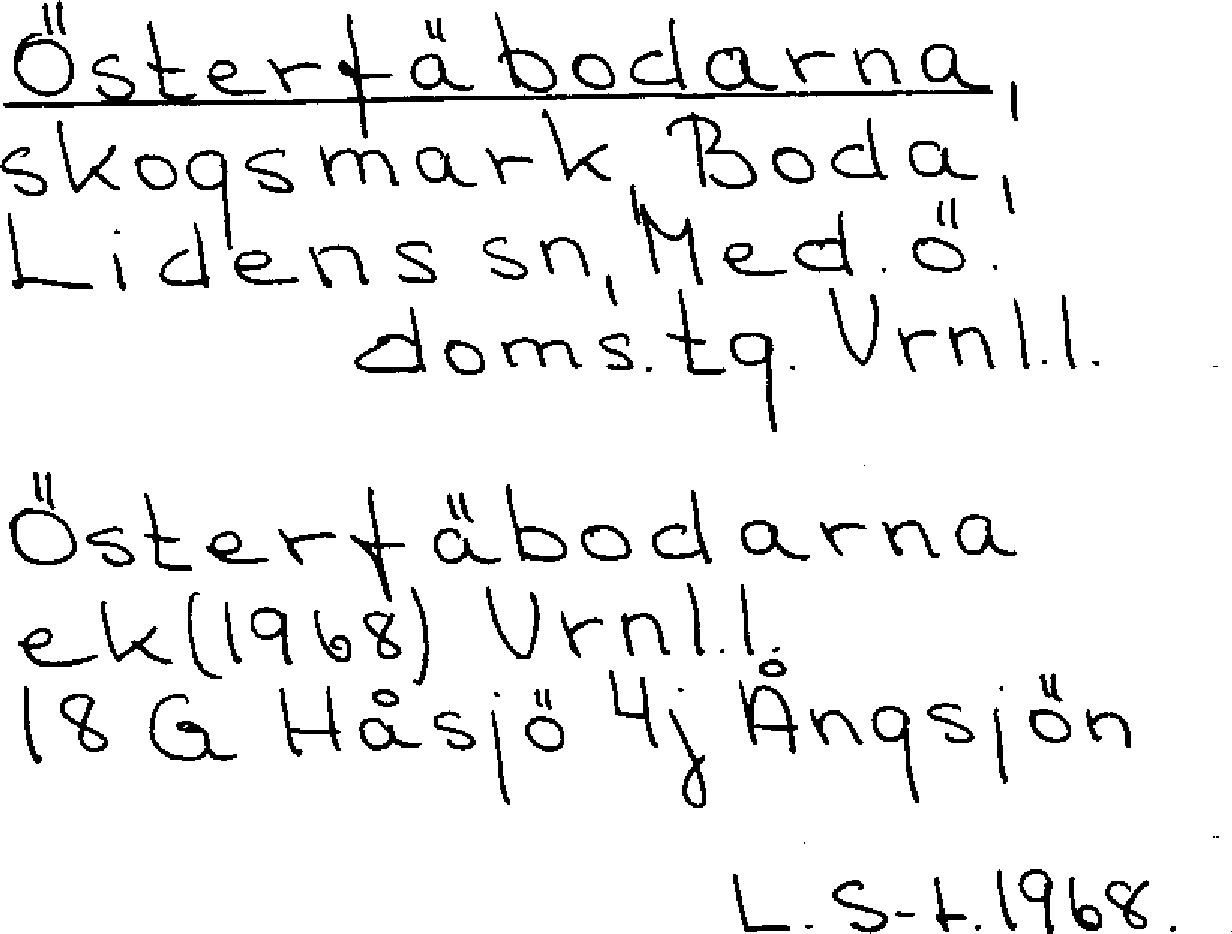 Österfäbodarna,
skogsmark, Boda,
Lidens sn, Med. ö.
doms.tg. Vrnl.l.
Österfäbodarna
ek (1968) Vrnl.l.
18 G Håsjö 4j Ångsjön
L. S-t. 1968.